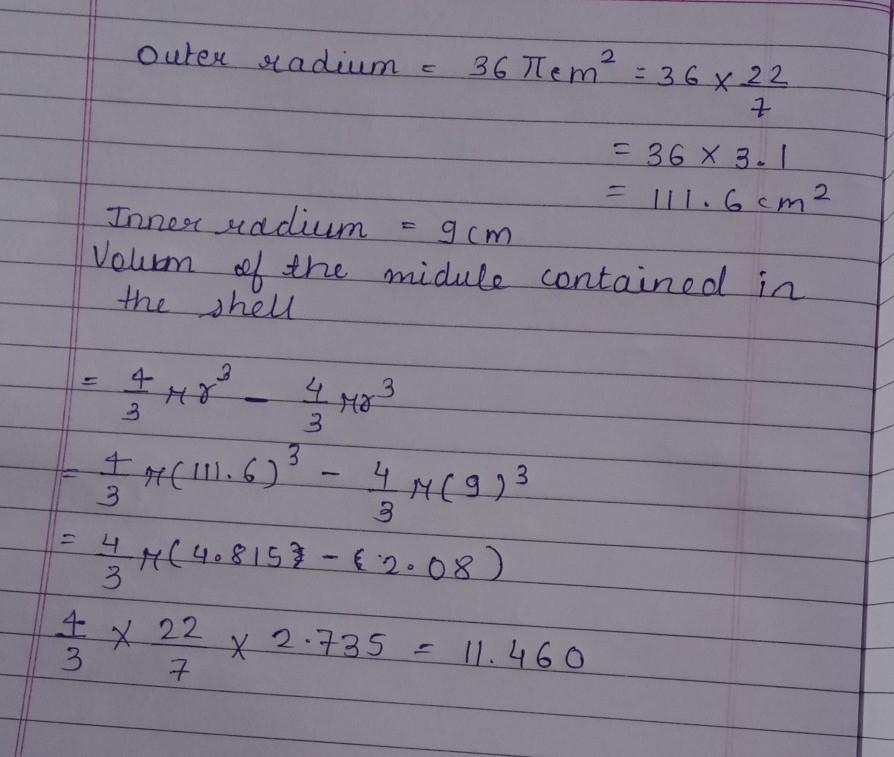 Outer radium = 36 π cm² = 36 × 22/7
= 36 × 3.1
= 111.6 cm²
Inner radium = 9cm
Volum of the midule contained in
the shell
= 4/3 πr³ - 4/3 πr³
= 4/3 π(111.6)³ - 4/3 π(9)³
= 4/3 π(4.815} - { 2.08)
4/3 × 22/7 × 2.735 = 11.460